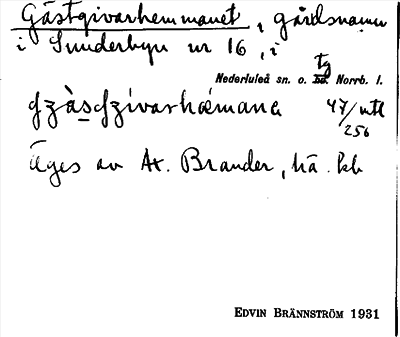 Gästgivarhemmanet, gårdsnamn
i Sunderbyn nr 16, i
tg
Nederluleå sn. o. hd. Norrb. l.
47/utl
256
Äges av Ax. Brander, hä. kb
EDVIN BRÄNNSTRÖM 1931